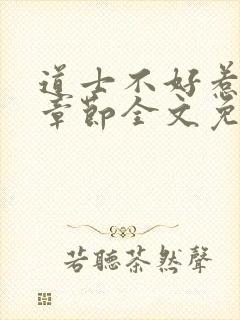 道士不好惹
章節全文免
若聽茶然聲